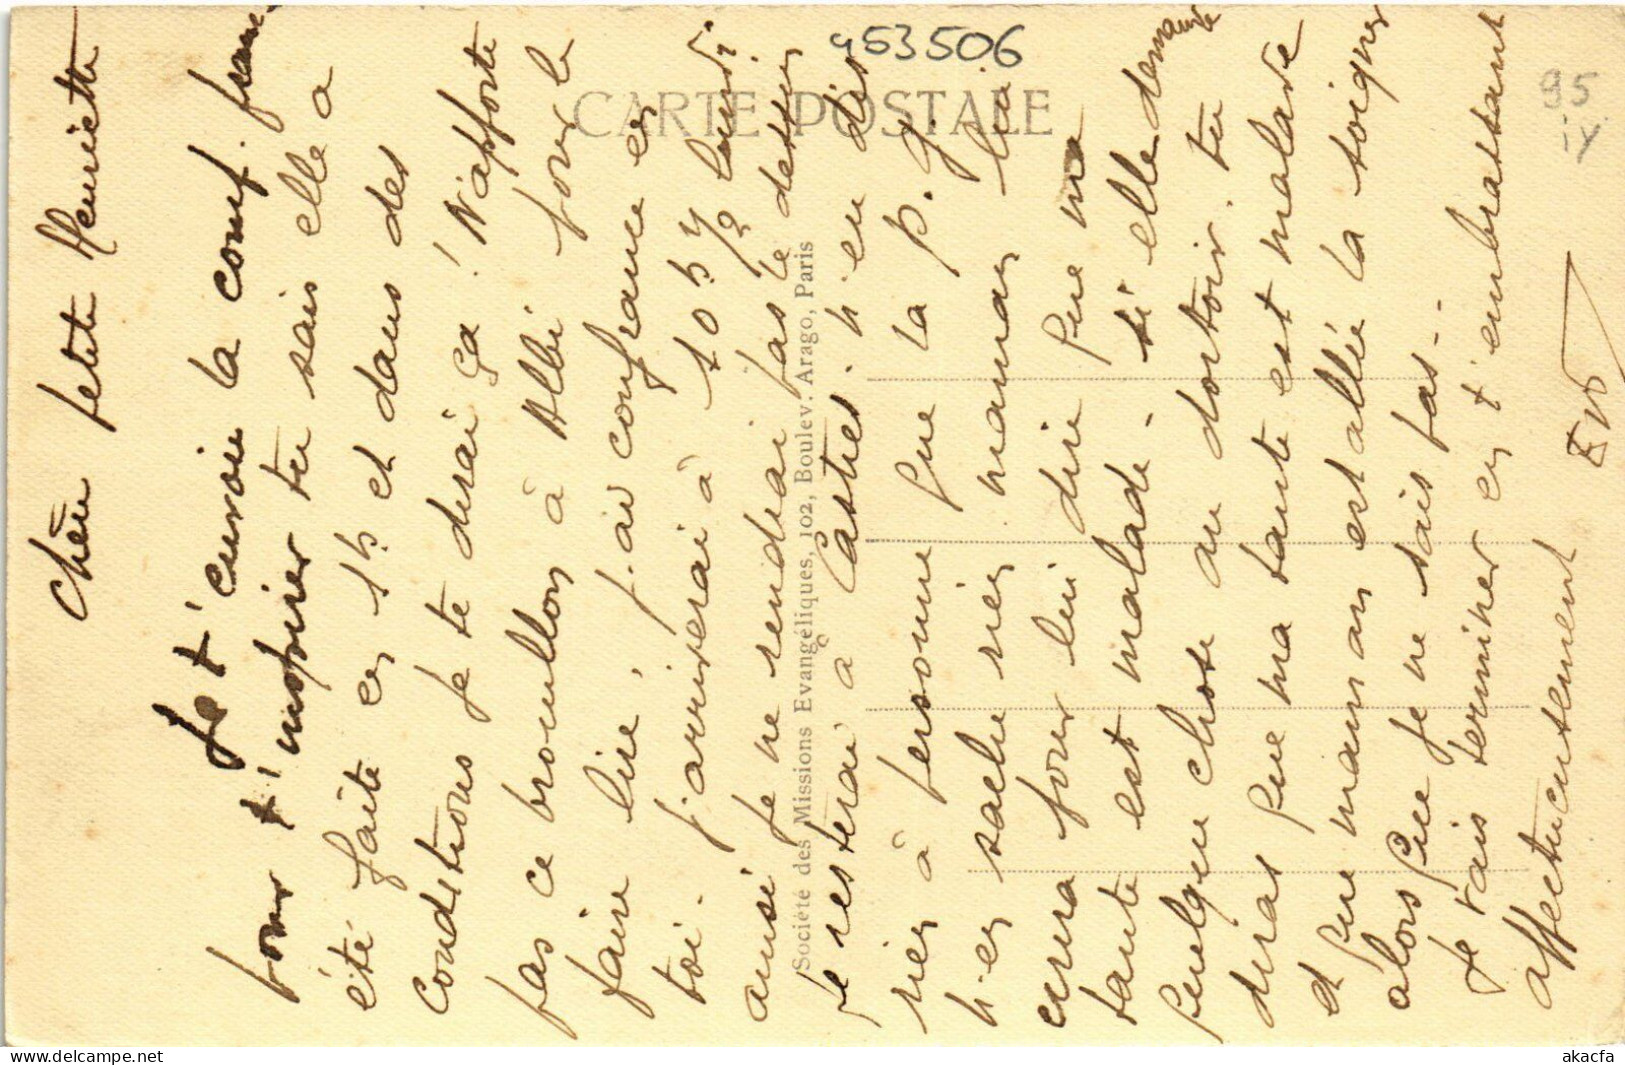 Chère petite Henriette
Je t'envoie la comp. franc.
pour t'inspirer tu sais elle a
été faite en 1h et dans des
conditions je te dirai ça ! N'apporte
pas ce brouillon à Albi pour le
faire lire, j'ai confiance en
toi. J'arriverai à 10 h 1/2 lundi
ainsi je ne rendrai pas le dessin
je resterai à Castres. N'en dis
rien à personne que la p. g.
n'en sache rien maman lui
écrira pour lui dire que ma
tante est malade. si elle demande
quelque chose au dortoir. tu
diras que ma tante est malade
et que maman est allée la soigner
alors que je ne sais pas..
Je vais terminer en t'embrassant
affectueusement
CARTE POSTALE
Société des Missions Evangéliques, 102, Boulev. Arago, Paris
453506
95
iy
www.delcampe.net
akacfa